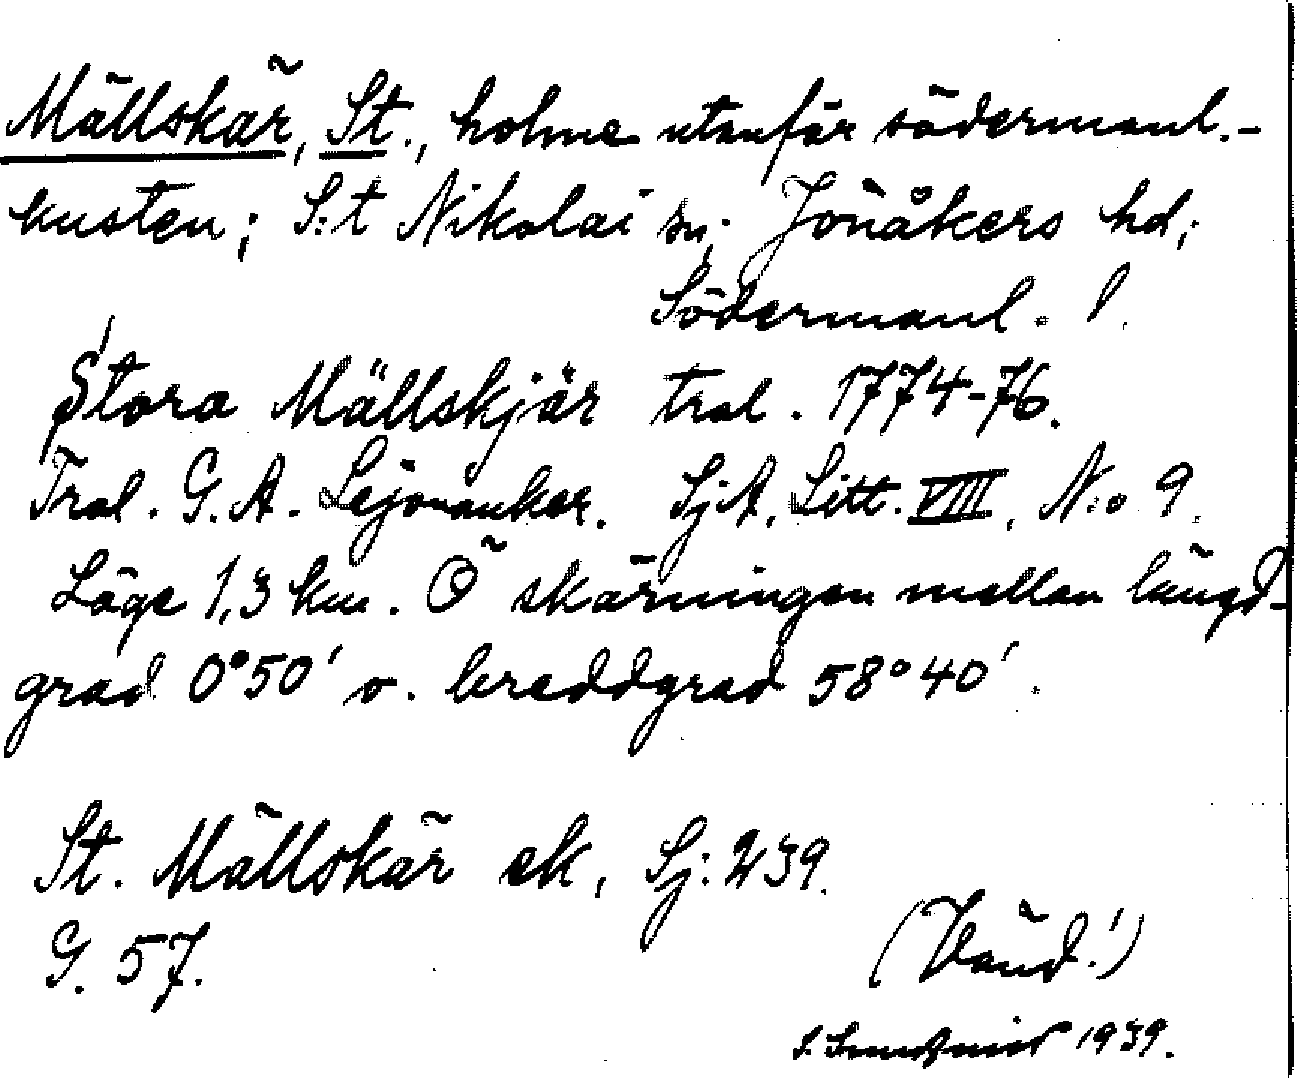 Mällskär, St., holme utanför södermanl.-
kusten; S:t Nikolai sn; Jönåkers hd;
Södermanl. l.
Stora Mällskjär tral. 1774-76.
Tral. G. A. Lejonanker. SjA, Litt. VIII, N:o 9.
Läge 1,3 km. Ö skärningen mellan längd-
grad 0°50' o. breddgrad 58°40'.
St. Mällskär ek, Sj: 239.
G. 57.
(Vänd!)
1939.